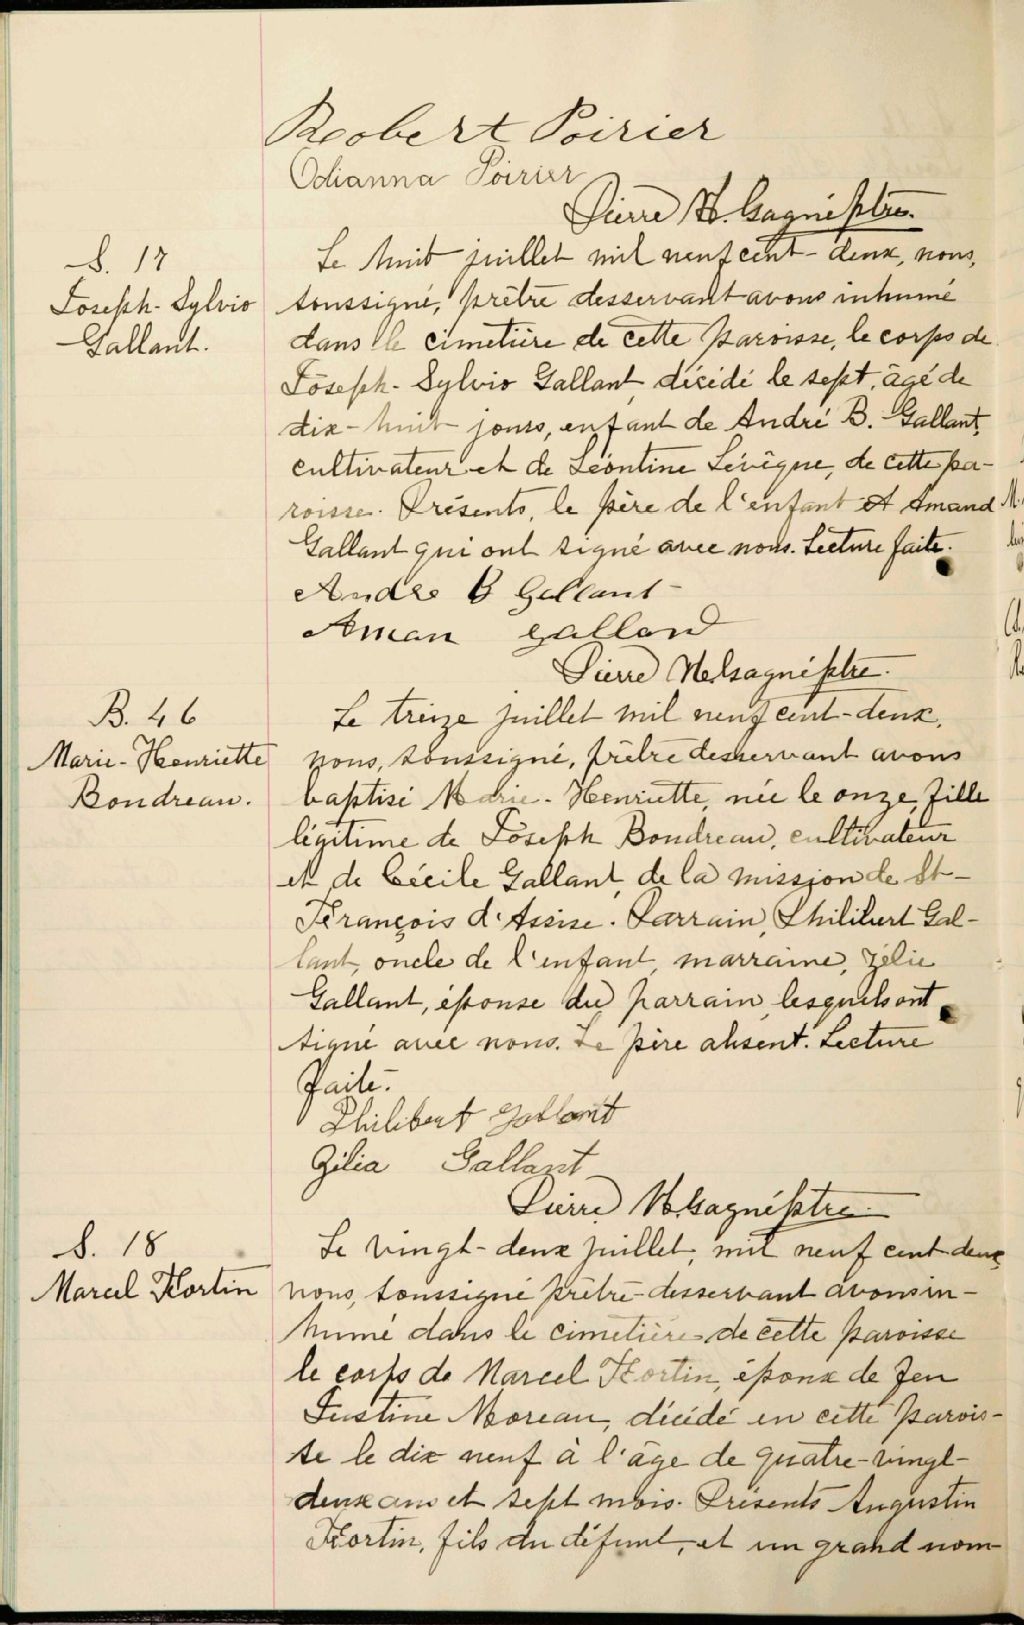 Robert Poirier
Odianna Poirier
Pierre N. Gagné ptre.
S. 17
Joseph-Sylvio
Gallant.
Le huit juillet mil neuf cent-deux, nous,
soussigné, prêtre desservant avons inhumé
dans le cimetière de cette paroisse, le corps de
Joseph-Sylvio Gallant, décédé le sept, âgé de
dix-huit jours, enfant de André B. Gallant,
cultivateur et de Léontine Lévêque, de cette pa-
roisse. Présents, le père de l'enfant et Amand
Gallant qui ont signé avec nous. Lecture faite.
Andre B Gallant
Aman Galland
Pierre N. Gagné ptre.
B. 46
Marie-Henriette
Boudreau.
Le treize juillet mil neuf cent-deux,
nous, soussigné, prêtre desservant avons
baptisé Marie-Henriette, née le onze, fille
légitime de Joseph Boudreau, cultivateur
et de Cécile Gallant, de la mission de St-
François d'Assise. Parrain, Philibert Gal-
lant, oncle de l'enfant, marraine, Zélie
Gallant, épouse du parrain, lesquels ont
signé avec nous. Le père absent. Lecture
faite.
Philibert Gallant
Zilia Gallant
Pierre N. Gagné ptre.
S. 18
Marcel Fortin
Le vingt-deux juillet, mil neuf cent deux
nous, soussigné prêtre-desservant avons in-
humé dans le cimetière de cette paroisse
le corps de Marcel Fortin, époux de feu
Justine Moreau, décédé en cette parois-
se le dix neuf à l'âge de quatre-vingt-
deux ans et sept mois. Présents Augustin
Fortin, fils du défunt, et un grand nom-